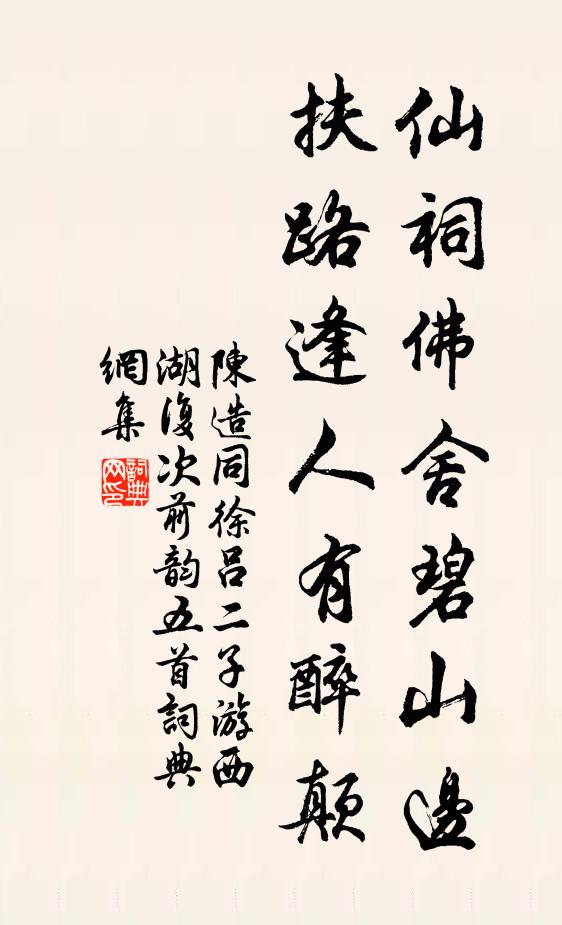 仙祠佛舍碧山邊
扶路逢人有醉顛
陳造同徐呂二子游西
湖復次前韵五首詞典
網集
詞典
网印